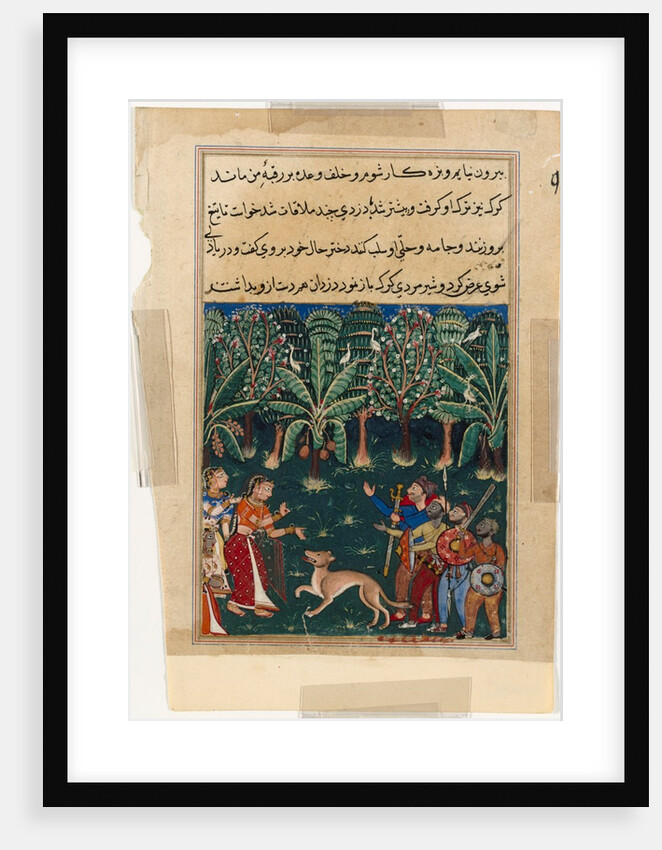 بیرون نیایم و بزه کار شوم و خلف وعده بر رقبهٔ من ماند
کرک نیز ترک او کرفت و پیشتر شد با دزدی چند ملاقات شد خواست تا تیغ
برو زنند و جامه و حلی او سلب کنند دختر حال خود بر وی کفت و در باذلی
شوی عرض کرد و شیر مردی کرک باز نمود دزدان هم دست ازو بداشت